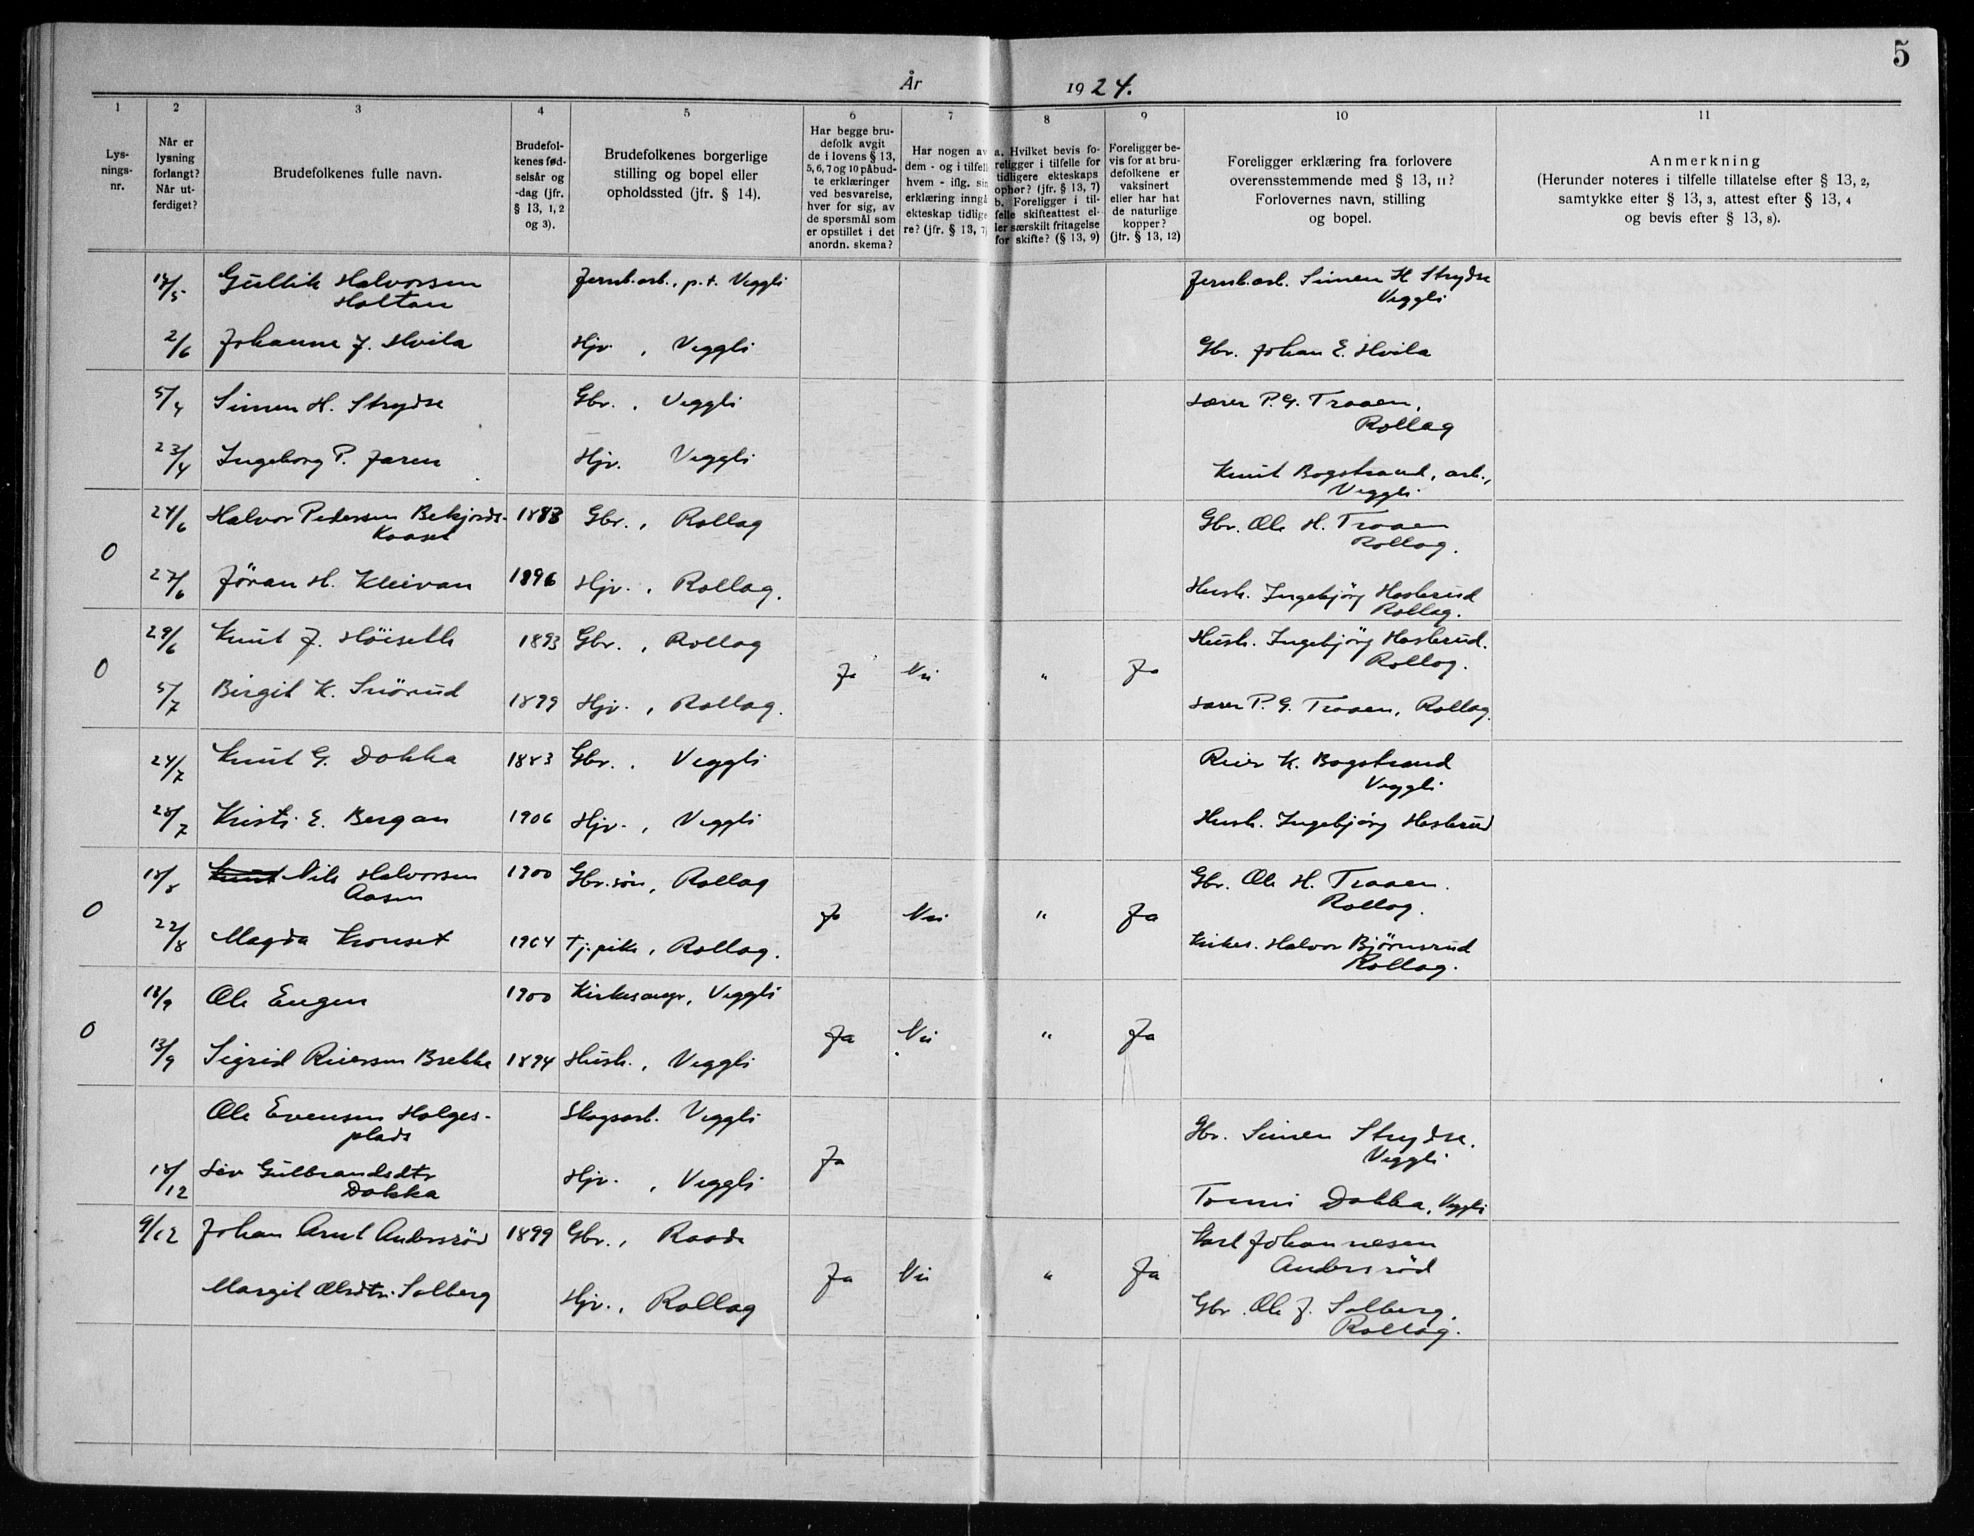 5
År 1924.
1 2 3 4 5 6 7 8 9 10 11
Lysningsnr.
Når er lysning forlangt? Når utferdiget?
Brudefolkenes fulle navn.
Brudefolkenes fødselsår og -dag (jfr. § 13, 1,2 og 3).
Brudefolkenes borgerlige stilling og bopel eller opholdssted (jfr. § 14).
Har begge brudefolk avgit de i lovens § 13, 5, 6, 7 og 10 påbudte erklæringer ved besvarelse, hver for sig, av de spørsmål som er opstillet i det anordn. skema?
Har nogen av dem - og i tilfelle hvem - iflg. sin erklæring inngå ekteskap tidligere? (jfr. § 13, 7)
a. Hvilket bevis foreligger i tilfelle for tidligere ekteskaps ophør? (jfr. § 13, 7) b. Foreligger i tilfelle skifteattest eller særskilt fritagelse for skifte? (§ 13, 9)
Foreligger bevis for at brudefolkene er vaksinert eller har hat de naturlige kopper? (jfr. § 13, 12)
Foreligger erklæring fra forlovere overensstemmende med § 13, 11? Forlovernes navn, stilling og bopel.
Anmerkning
(Herunder noteres i tilfelle tillatelse efter § 13, 2, samtykke efter § 13, 3, attest efter § 13, 4 og bevis efter § 13, 8).
Gullik Halvorsen Jernb.arb., p.t. Veggli Jernb.arb. Simen H. Strydse
Holtan Veggli
2/6 Johanne J. Hvila Hjv., Veggli Gbr. Johan E. Hvila
5/4 Simen H. Strydse Gbr., Veggli Lærer P. G. Traaen,
Rollag
23/4 Ingeborg P. Jaren Hjv. Veggli Knut Bogstrand, arb.,
Veggli
24/6 Halvor Pedersen Bekjords- 1883 Gbr., Rollag Gbr. Ole H. Traaen
Kaaset Rollag.
0
27/6 Jöran H. Kleivan 1896 Hjv., Rollag. Hush. Ingebjörg Hasterud
Rollag.
29/6 Knut J. Höiseth 1893 Gbr., Rollag Hush. Ingebjörg Hasterud.
Rollag.
0 Ja Nei " Ja
5/7 Birgit K. 1899 Hjv., Rollag. Lærer P. G. Traaen, Rollag.
24/7 Knut G. Dokka 1883 Gbr., Veggli Reier K. Bogstrand
Veggli
28/7 Kristi E. Bergan 1906 Hjv., Veggli Hush. Ingebjörg Hasterud
18/8 Knut Nils Halvorsen 1900 Gbr.sön, Rollag Gbr. Ole H. Traaen.
Aasen Rollag.
0 Ja Nei " Ja
22/8 Magda Kronset 1904 Tj.pike, Rollag. Kirkes. Halvor Björnsrud
Rollag.
Ole Engen 1900 Kirkesanger, Veggli
0 Ja Nei " Ja
13/9 Sigrid Reiersen Brekke 1894 Hush., Veggli
Ole Evensen Holges- Skogsarb. Veggli Gbr. Simen Strydse.
plads Veggli
Ja
18/12 Liv Gulbrandsdtr Hjv., Veggli
Dokka Dokka, Veggli
9/12 Johan Arnt Andersröd 1899 Gbr., Raade Karl Johannesen
Andersröd
Ja Nei " Ja
Margit Olsdtr. Solberg Hjv., Rollag Gbr. Ole J. Solberg.
Rollag.